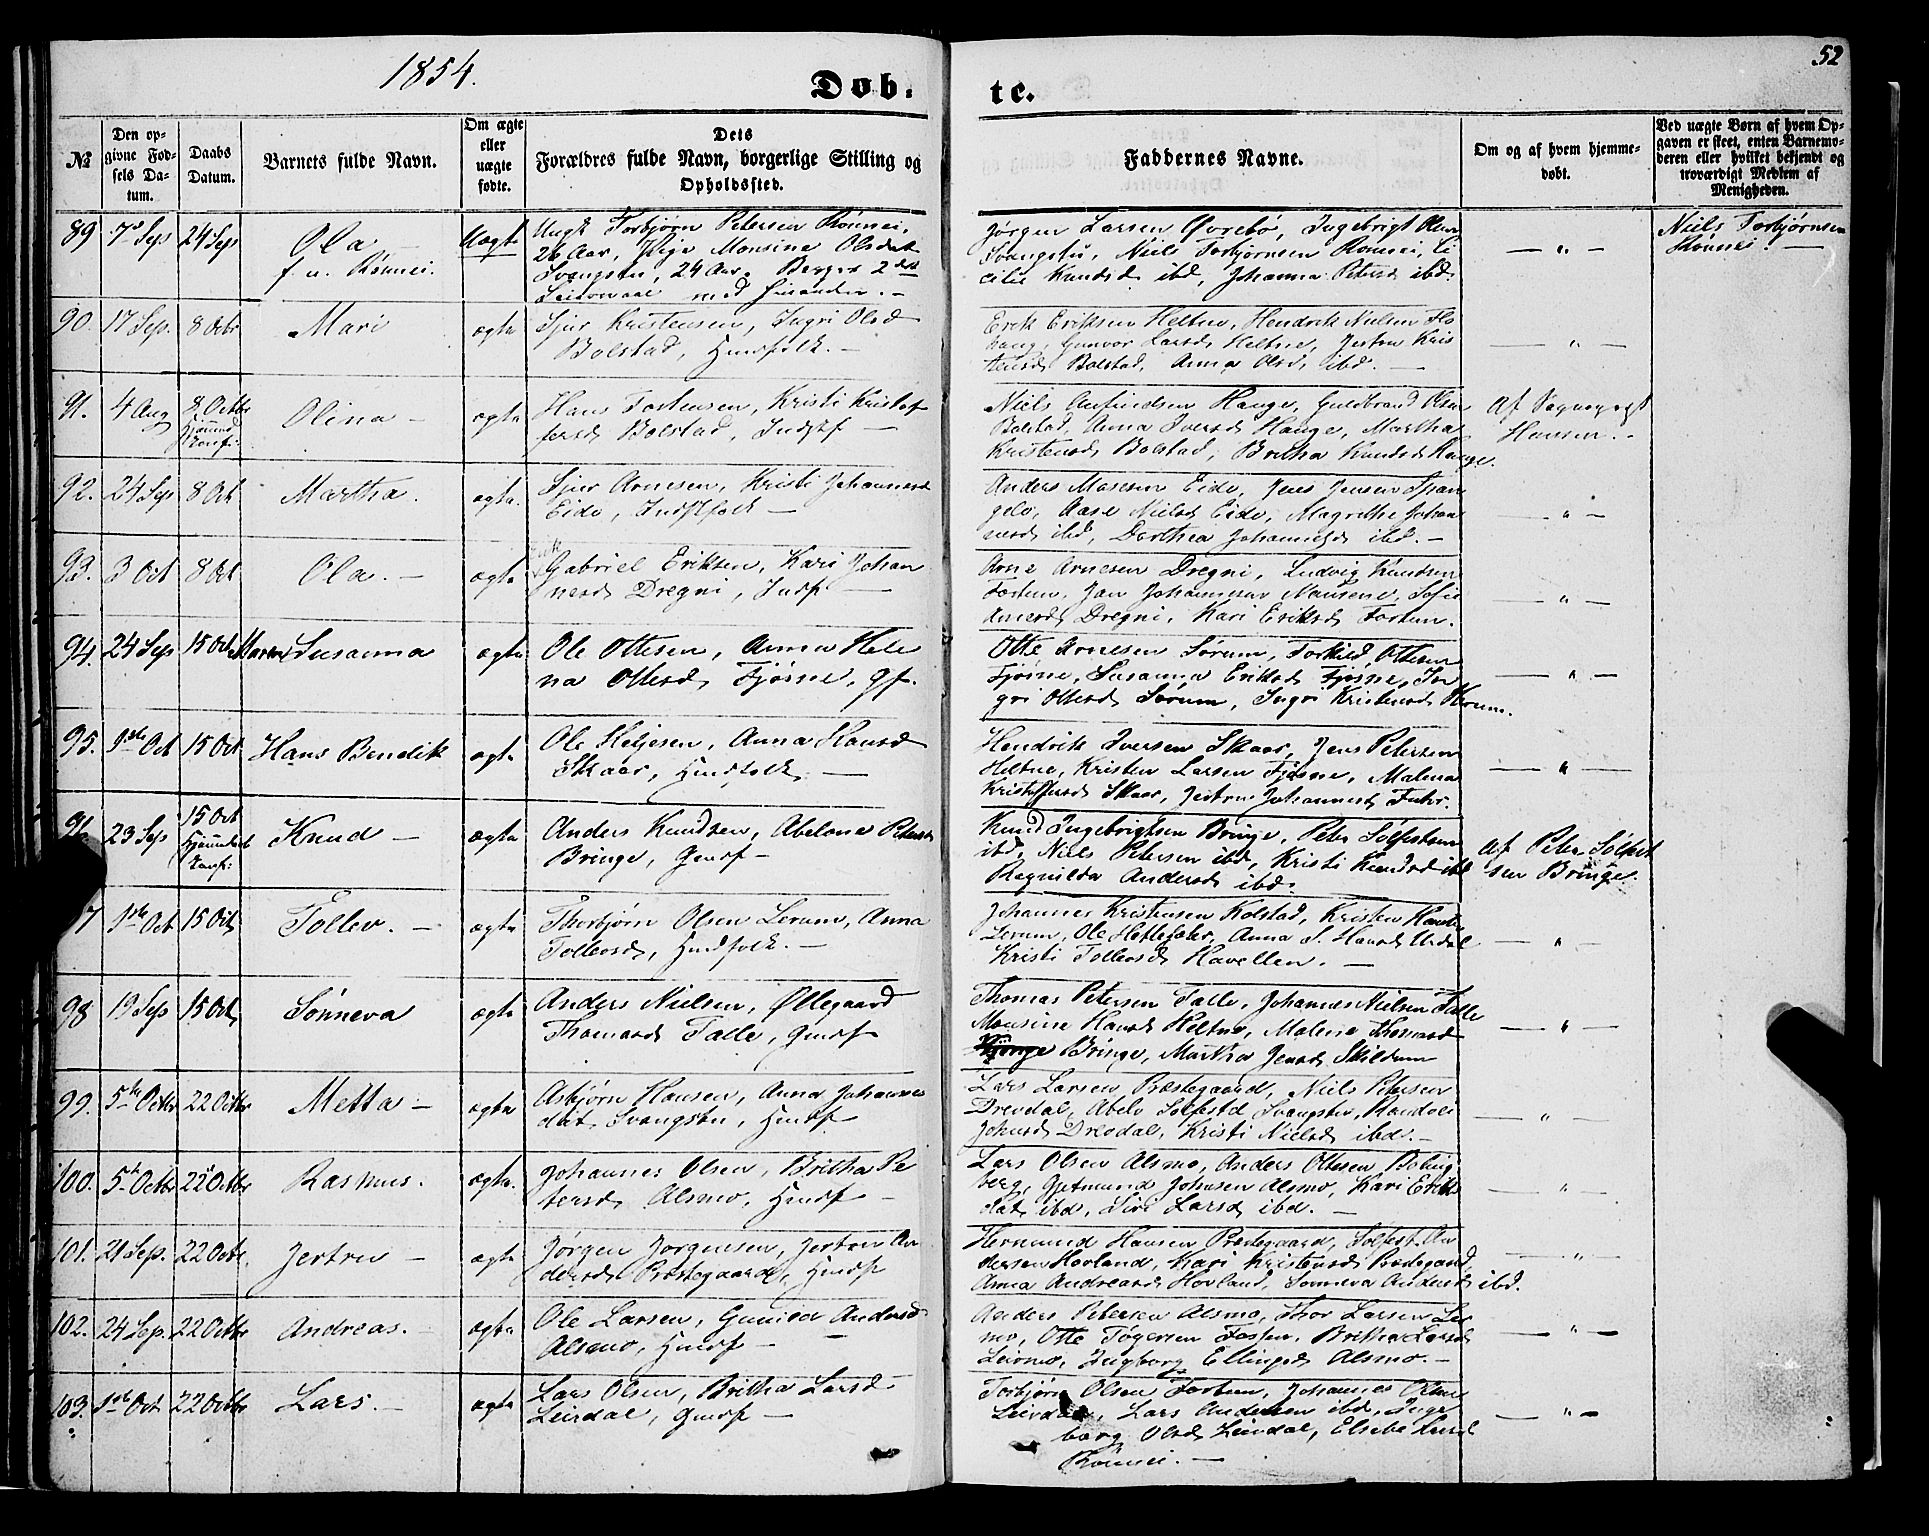 52
1854.
Døb. te.
№
Den opgivne Fødsels Datum.
Daabs Datum.
Barnets fulde Navn.
Om ægte eller uægte fødte.
Dets Forældres fulde Navn, borgerlige Stilling og Opholdssted.
Faddernes Navne.
Om og af hvem hjemmedøbt.
Ved uægte Børn af hvem Opgaven er skeet, enten Barnemoderen eller hvilket bekjendt og troværdigt Medlem af Menigheden.
89 7de Sep 24 Sep Ola
f. u. Rönnei.
Uægte
Ungk Torbjørn Petersen Rönnei,
26 Aar, Pige Monsine Olsdat
Svangstu, 24 Aar. Begges 2det
Leiermaal med hinanden.
Jørgen Larsen Øvrebø, Ingebrigt Olsen
Svangstu, Niels Torbjørnsen Rönnei, Ci
cilie Knudsd ibd, Johanna Petersd ibd.
— " —
Niels Torbjørnsen
Rönnei —
90. 17 Sep. 8 Octr Mari ægte
Sjur Kristensen, Ingri Olsd
Bolstad, Huusfolk. —
Erik Eriksen Heltne, Hendrik Nielsen Flo
haug, Gunvor Larsd Heltne, Jertru Kris
tensd Bolstad, Anna Olsd, ibd. —
— " —
91. 4 Aug 8 Octbr Olina — ægte
Hans Torstensen, Kristi Kristof
fersd Bolstad, Indstf —
Niels Anfindsen Hauge, Guldbrand Olsen
Bolstad, Anna Iversd Hauge, Martha
Kristensd Bolstad, Britha Knudsd Hauge.
Af Sognepræst
Hansen. -
92. 24 Sep 8 Oct Martha. ægte.
Sjur Arnesen, Kristi Johannesd
Eide, Indstfolk —
Anders Mosesen Eide, Jens Jensen Span
gelo, Aase Nielsd Eide, Magrethe Johan
nesd ibd, Dorthea Johannesd ibd. —
— " —
93. 3 Oct 8 Oct Ola. — ægte
Gabriel Eriksen, Kari Johan
nesd Dregni, Indsf —
Arne Arnesen Dregni, Ludvig Knudsen
Fortun, Jan Johannesen Mausene, Sofie
Arnesd Dregni, Kari Eriksd Fortun.
— " —
94. 24 Sep 15 Oct Maren Susanna ægte
Ole Ottesen, Anna Hele
na Ottesd, Fjøsne, gf.
Otte Arnesen Sörum, Torkild Ottesen
Fjösne, Susanna Eriksd Fjösne, In
gri Ottesd Sörum, Ingri Kristensd Kvum.
— " —
95. 1ste Oct 15 Oct Hans Bendik ægte
Ole Heljesen, Anna Hansd
Skaar, Huusfolk, —
Hendrik Iversen Skaar, Jens Petersen
Heltne, Kristen Larsen Fjösne, Malena
Kristoffersd Skaar, Jertru Johannesd Fuhr.
— " —
96 23 Sep 15 Oct Knud — ægte
Anders Knudsen, Abelone Petersd
Bringe, Gmdf —
Knud Ingebrigtsen Bringe, Peter Sölfestsen
ibd, Niels Petersen ibd, Kristi Knudsd ibd
Ragnilda Andersd ibd.
Af Peter Sölfest
sen Bringe.
7 1ste Oct 15 Oct Tollev. — ægte
Thorbjörn Olsen Lerum, Anna
Tollevsd, Huusfolk. —
Johannes Kristensen Kolstad, Kristen
Lerum, Ole Hetlesæter, Anna S. Hansd Urdal
Kristi Tollevsd Havellen. —
— " —
98 19 Sep 15 Oct Sönneva ægte
Anders Nielsen, Øllegaard
Thomasd Talle, Gmdsf
Thomas Petersen Talle, Johannes Nielsen Talle
Monsine Hansd Heltne, Malene Thomasd
Bringe, Martha Jensd Skildum
— " —
99. 5te Octbr 22 Octbr Metta — ægte
Asbjørn Hansen, Anna Johannes
dat Svangstu, Huusf
Lars Larsen Præstegaard, Niels Petersen
Drevdal, Abelo Sölfestd Svangstu, Randvei
Johnsd Drevdal, Kristi Nielsd ibd. —
— " —
100. 5te Octbr 22 Octbr Rasmus. ægte.
Johannes Olsen, Britha Pe
tersd, Alsmo, Huusf —
Lars Olsen Alsmo, Anders Ottesen Boling
berg, Gjetmund Johnsen Alsmo, Kari Eriks
dat ibd, Siri Larsd ibd. —
— " —
101. 21 Sep. 22 Octbr. Jertru — ægte
Jørgen Jørgensen, Jertru An
dersd Præstegaard, Huusf
Hermund Hansen Præstegaard, Sölfest An
dersen Hovland, Kari Kristensd Præstegaard,
Anna Andreasd Hovland, Sönneva Andersd ibd.
— " —
102. 24 Sep. 22 Octbr Andreas. ægte
Ole Larsen, Gunild Andersd
Alsmo, Huusf —
Anders Petersen Alsmo, Thor Larsen Lei
mo, Otte Tøgersen Fossen, Britha Larsd
Leirmo, Ingborg Ellingsd Alsmo. —
— " —
103. 1ste Oct 22 Octbr Lars. — ægte
Lars Olsen, Britha Larsd
Leirdal, Gmdsf —
Torbjörn Olsen Fortun, Johannes Olsen
Leirdal, Lars Andersen ibd, Inge
borg Olsd Leirdal, Elsebe Larsd
Rönnei. —
— " —